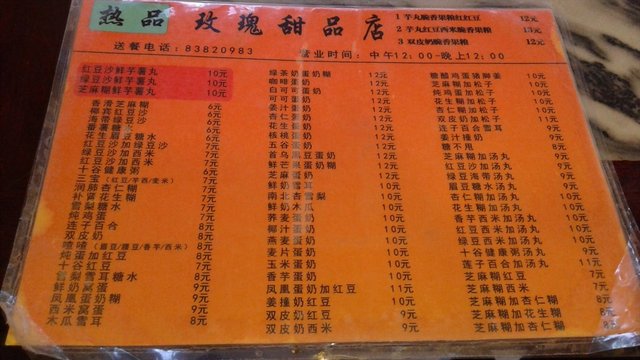 热品 玫瑰甜品店
1 芋丸脆香果粮红豆 12元
2 芋丸红豆西米脆香果粮 13元
3 双皮奶脆香果粮 12元
送餐电话:83820983 营业时间:中午12:00-晚上12:00
红豆沙鲜芋薯丸 10元
绿豆沙鲜芋薯丸 10元
芝麻糊鲜芋薯丸 10元
香滑芝麻糊 6元
椰宾红豆沙 6元
海带绿豆沙 6元
番薯糖水 6元
花生眉豆糖水 6元
红豆沙加绿豆沙 7元
绿豆沙加西米 7元
红豆沙加西米 7元
十谷健康粥 7元
三宝(红豆/芋西/麦米) 7元
润肺杏仁糊 7元
补肾花生糊 7元
雪梨糖水 7元
炖鸡蛋 7元
莲子百合 7元
双皮奶 7元
喳喳(眉豆/绿豆/香芋/西米) 7元
炖蛋加红豆 8元
十谷红豆 7元
雪梨雪耳糖水 8元
鲜奶窝蛋 9元
凤凰蛋奶糊 9元
西米窝蛋 9元
木瓜雪耳 8元
绿茶奶蛋奶糊 12元
咖啡蛋奶 12元
白可可蛋奶 12元
可可蛋奶 12元
姜汁蛋奶 12元
杏仁蛋奶 12元
花生蛋奶 12元
核桃蛋奶 12元
五谷蛋奶 12元
首乌黑豆蛋奶 12元
鲜芒果蛋奶糊 12元
芝麻蛋奶 11元
鲜奶雪耳 10元
南北杏雪梨 10元
鲜奶木瓜 10元
荞麦蛋奶 10元
椰汁蛋奶 10元
燕麦蛋奶 10元
麦片蛋奶 10元
玉米蛋奶 10元
香芋蛋奶 10元
凤凰蛋奶加红豆 11元
姜撞奶红豆 10元
双皮奶红豆 9元
双皮奶西米 9元
糖醋鸡蛋猪脚姜 10元
芝麻糊加松子 10元
花生糊加松子 10元
杏仁糊加松子 10元
炖鸡蛋加松子 10元
双皮奶加松子 11元
莲子百合雪耳 9元
姜汁撞奶 9元
糖不甩 8元
芝麻糊加汤丸 9元
红豆沙加汤丸 9元
绿豆海带汤丸 9元
眉豆糖水汤丸 9元
花生糊加汤丸 9元
香芋西米加汤丸 9元
红豆西米加汤丸 9元
绿豆西米加汤丸 9元
十谷健康粥汤丸 9元
莲子百合加汤丸 11元
芝麻糊红豆 7元
芝麻糊西米 7元
芝麻糊加杏仁糊 8元
芝麻糊加花生糊 8元
芝麻糊加杏仁糊 8元